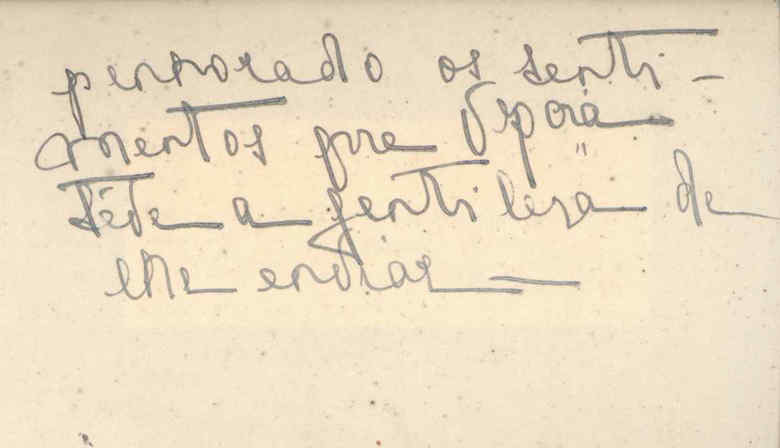 penhorado os senti-
mentos que
teve a gentileza de
lhe enviar —